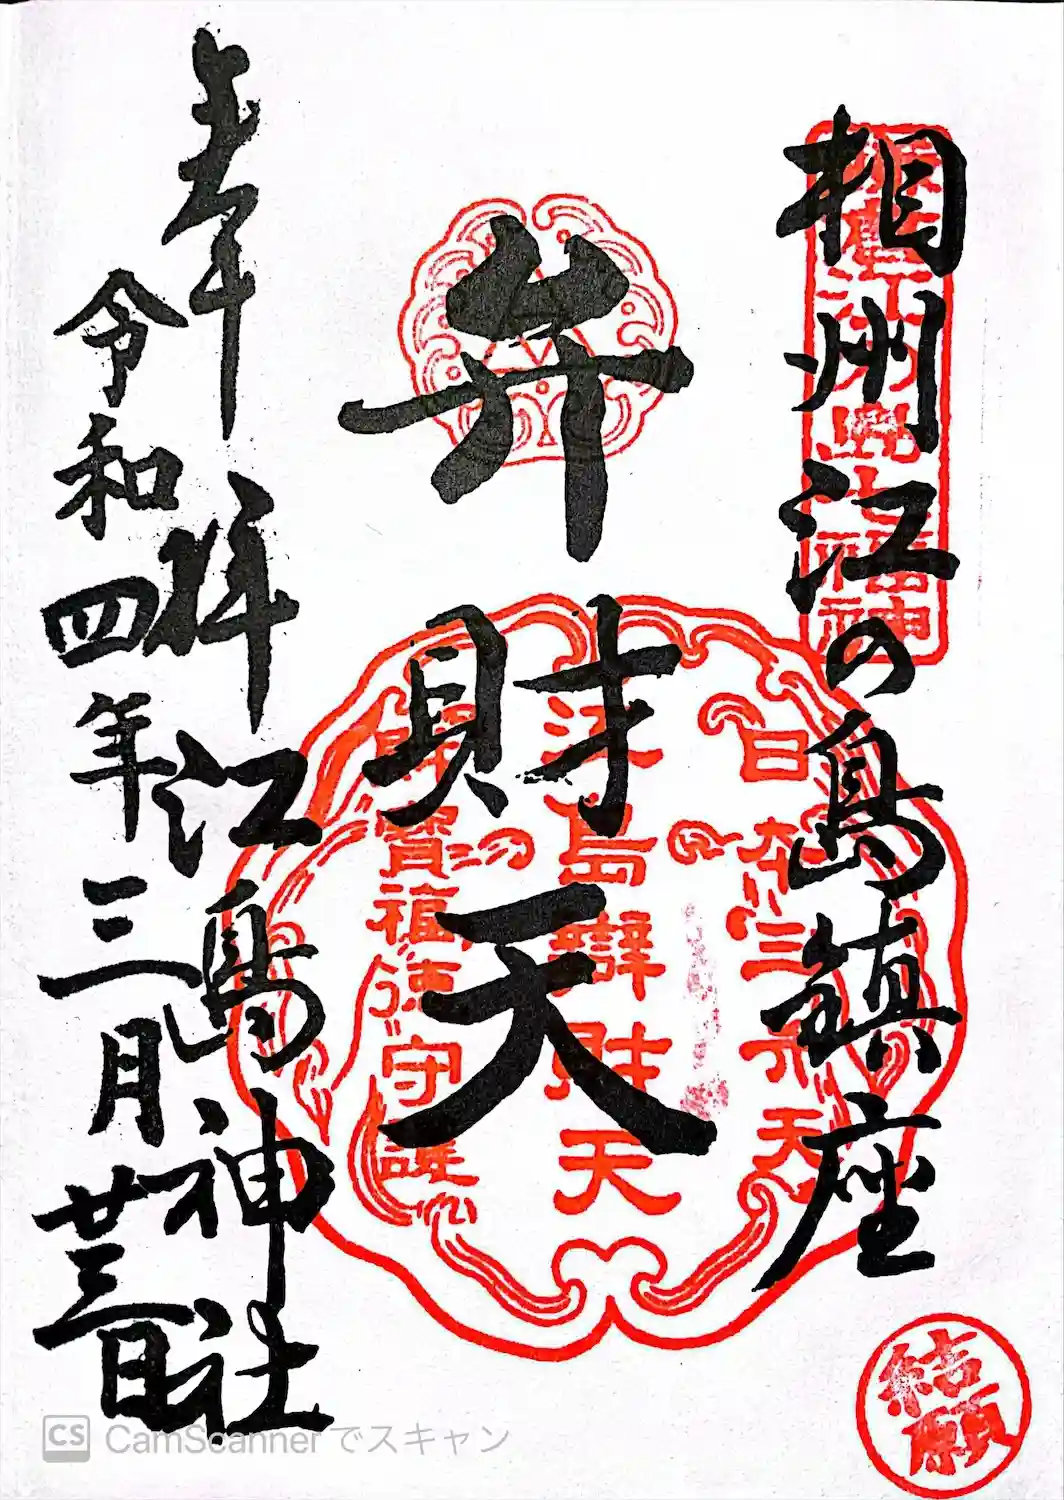 相州江の島鎮座
弁財天
奉拝 江島神社
令和四年三月廿三日
日本三弁天
江島辯財天
財寶福徳守護
結願
CamScannerでスキャン